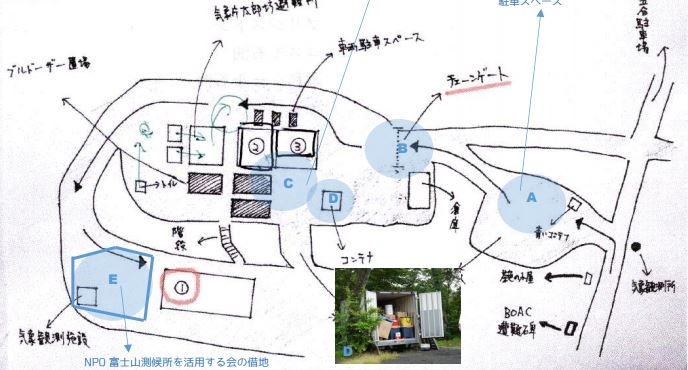 駐車スペース
五合駐車場
気象庁太郎坊避難所
車両駐車スペース
ブルドーザー置場
チェーンゲート
②
③
B
A
C
D
トイレ
倉庫
青いコンテナ
階段
コンテナ
E
①
気象観測所
BOAC
遭難石碑
気象観測施設
D
NPO 富士山測候所を活用する会の借地